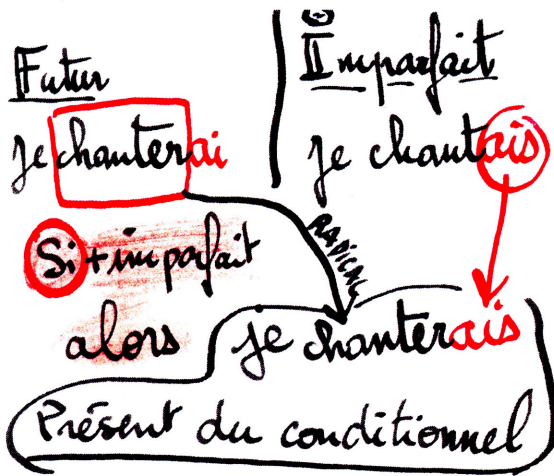 Futur
je chanterai
Imparfait
je chantais
RADICAL
Si + imparfait
alors
je chanterais
Présent du conditionnel